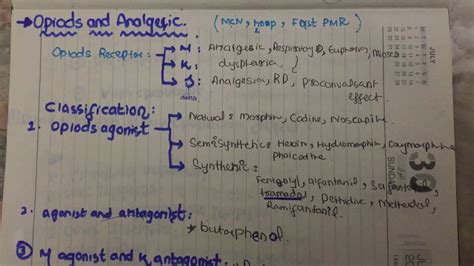 → Opiods and Analgesic. (MCN, hosp, Fast PMR)
Opiods Receptor: → M: Analgesic, Respiratory D, Euphoria, Miosis
→ K: dysphoria
→ S: Analgesia, RD, Proconvalsant effect.
Classification:
1. Opiods agonist → Natural: Morphin, Codine, Noscapin
→ Semisynthetic: Heroin, Hydromorphin, Oxymorphin
pholcodine
→ Synthetic:
Fentanyl, alfantanil,
tramadol, Pethidine, Methadol,
Remifantanil.
2. agonist and antagonist:
* butorphenol.
③ M agonist and K antagonist:
JULY
30
SUNDAY